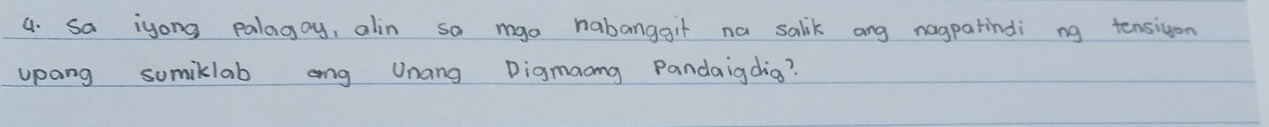 4. Sa iyong palagay, alin sa mga nabanggit na salik ang nagpatindi ng tensiyon
upang sumiklab ang Unang Digmaang Pandaigdig?